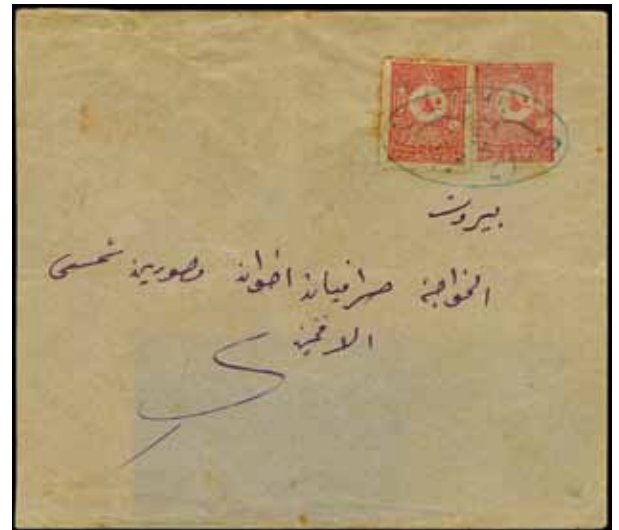 بيروت
الخواجة صرافيان اخوان مصورين شمسى
الافخمين